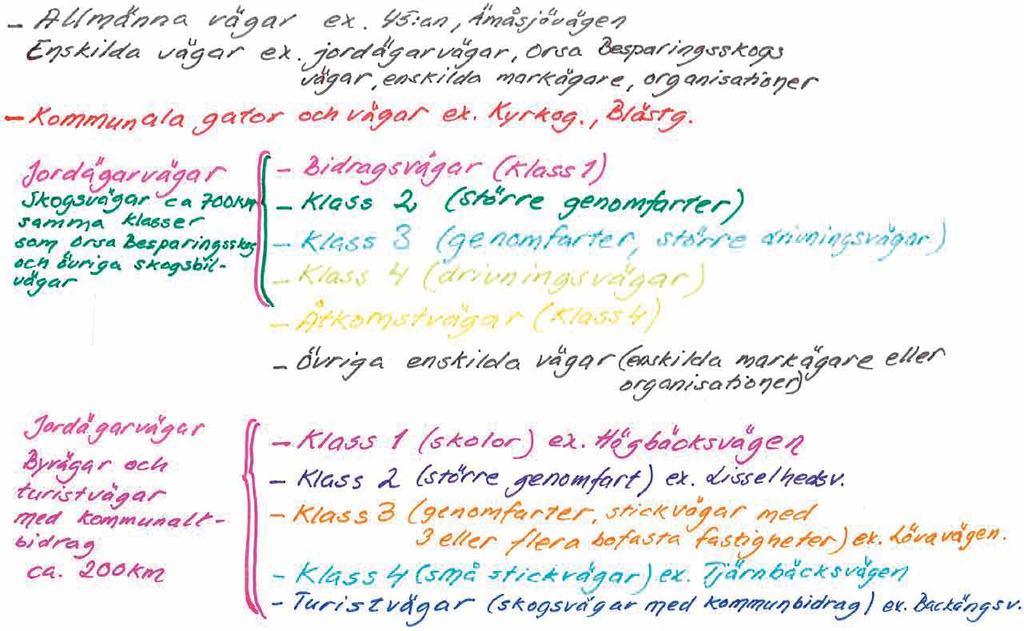 - Allmänna vägar ex. 45:an, Åmåsjövägen
Enskilda vägar ex. jordägarvägar, Orsa Besparingsskogs
vägar, enskilda markägare, organisationer
- Kommunala gator och vägar ex. Kyrkog., Blästg.
Jordägarvägar
Skogsvägar ca 700km
samma klasser
som Orsa Besparingsskog
och övriga skogsbil-
vägar
- Bidragsvägar (Klass 1)
- Klass 2 (större genomfarter)
- Klass 3 (genomfarter, större drivningsvägar)
- Klass 4 (drivningsvägar)
- Åtkomstvägar (Klass 4)
- Övriga enskilda vägar (enskilda markägare eller
organisationer)
Jordägarvägar
Byvägar och
turistvägar
med kommunalt-
bidrag
ca. 200km
- Klass 1 (skolor) ex. Högbäcksvägen
- Klass 2 (större genomfart) ex. Lisselhedsv.
- Klass 3 (genomfarter, stickvägar med
3 eller flera bofasta fastigheter) ex. Lövavägen.
- Klass 4 (små stickvägar) ex. Tjärnbäcksvägen
- Turistvägar (skogsvägar med kommunbidrag) ex. Backängsv.